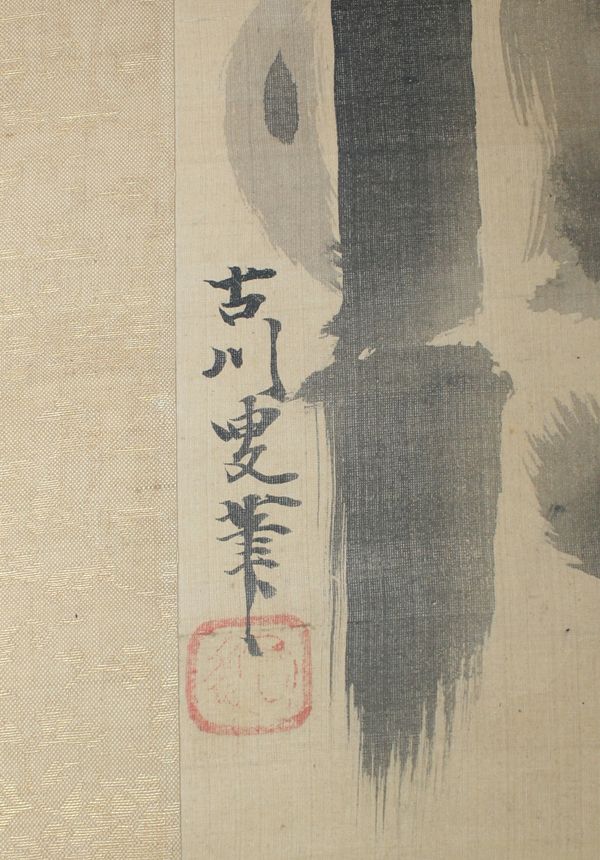 古川叟筆